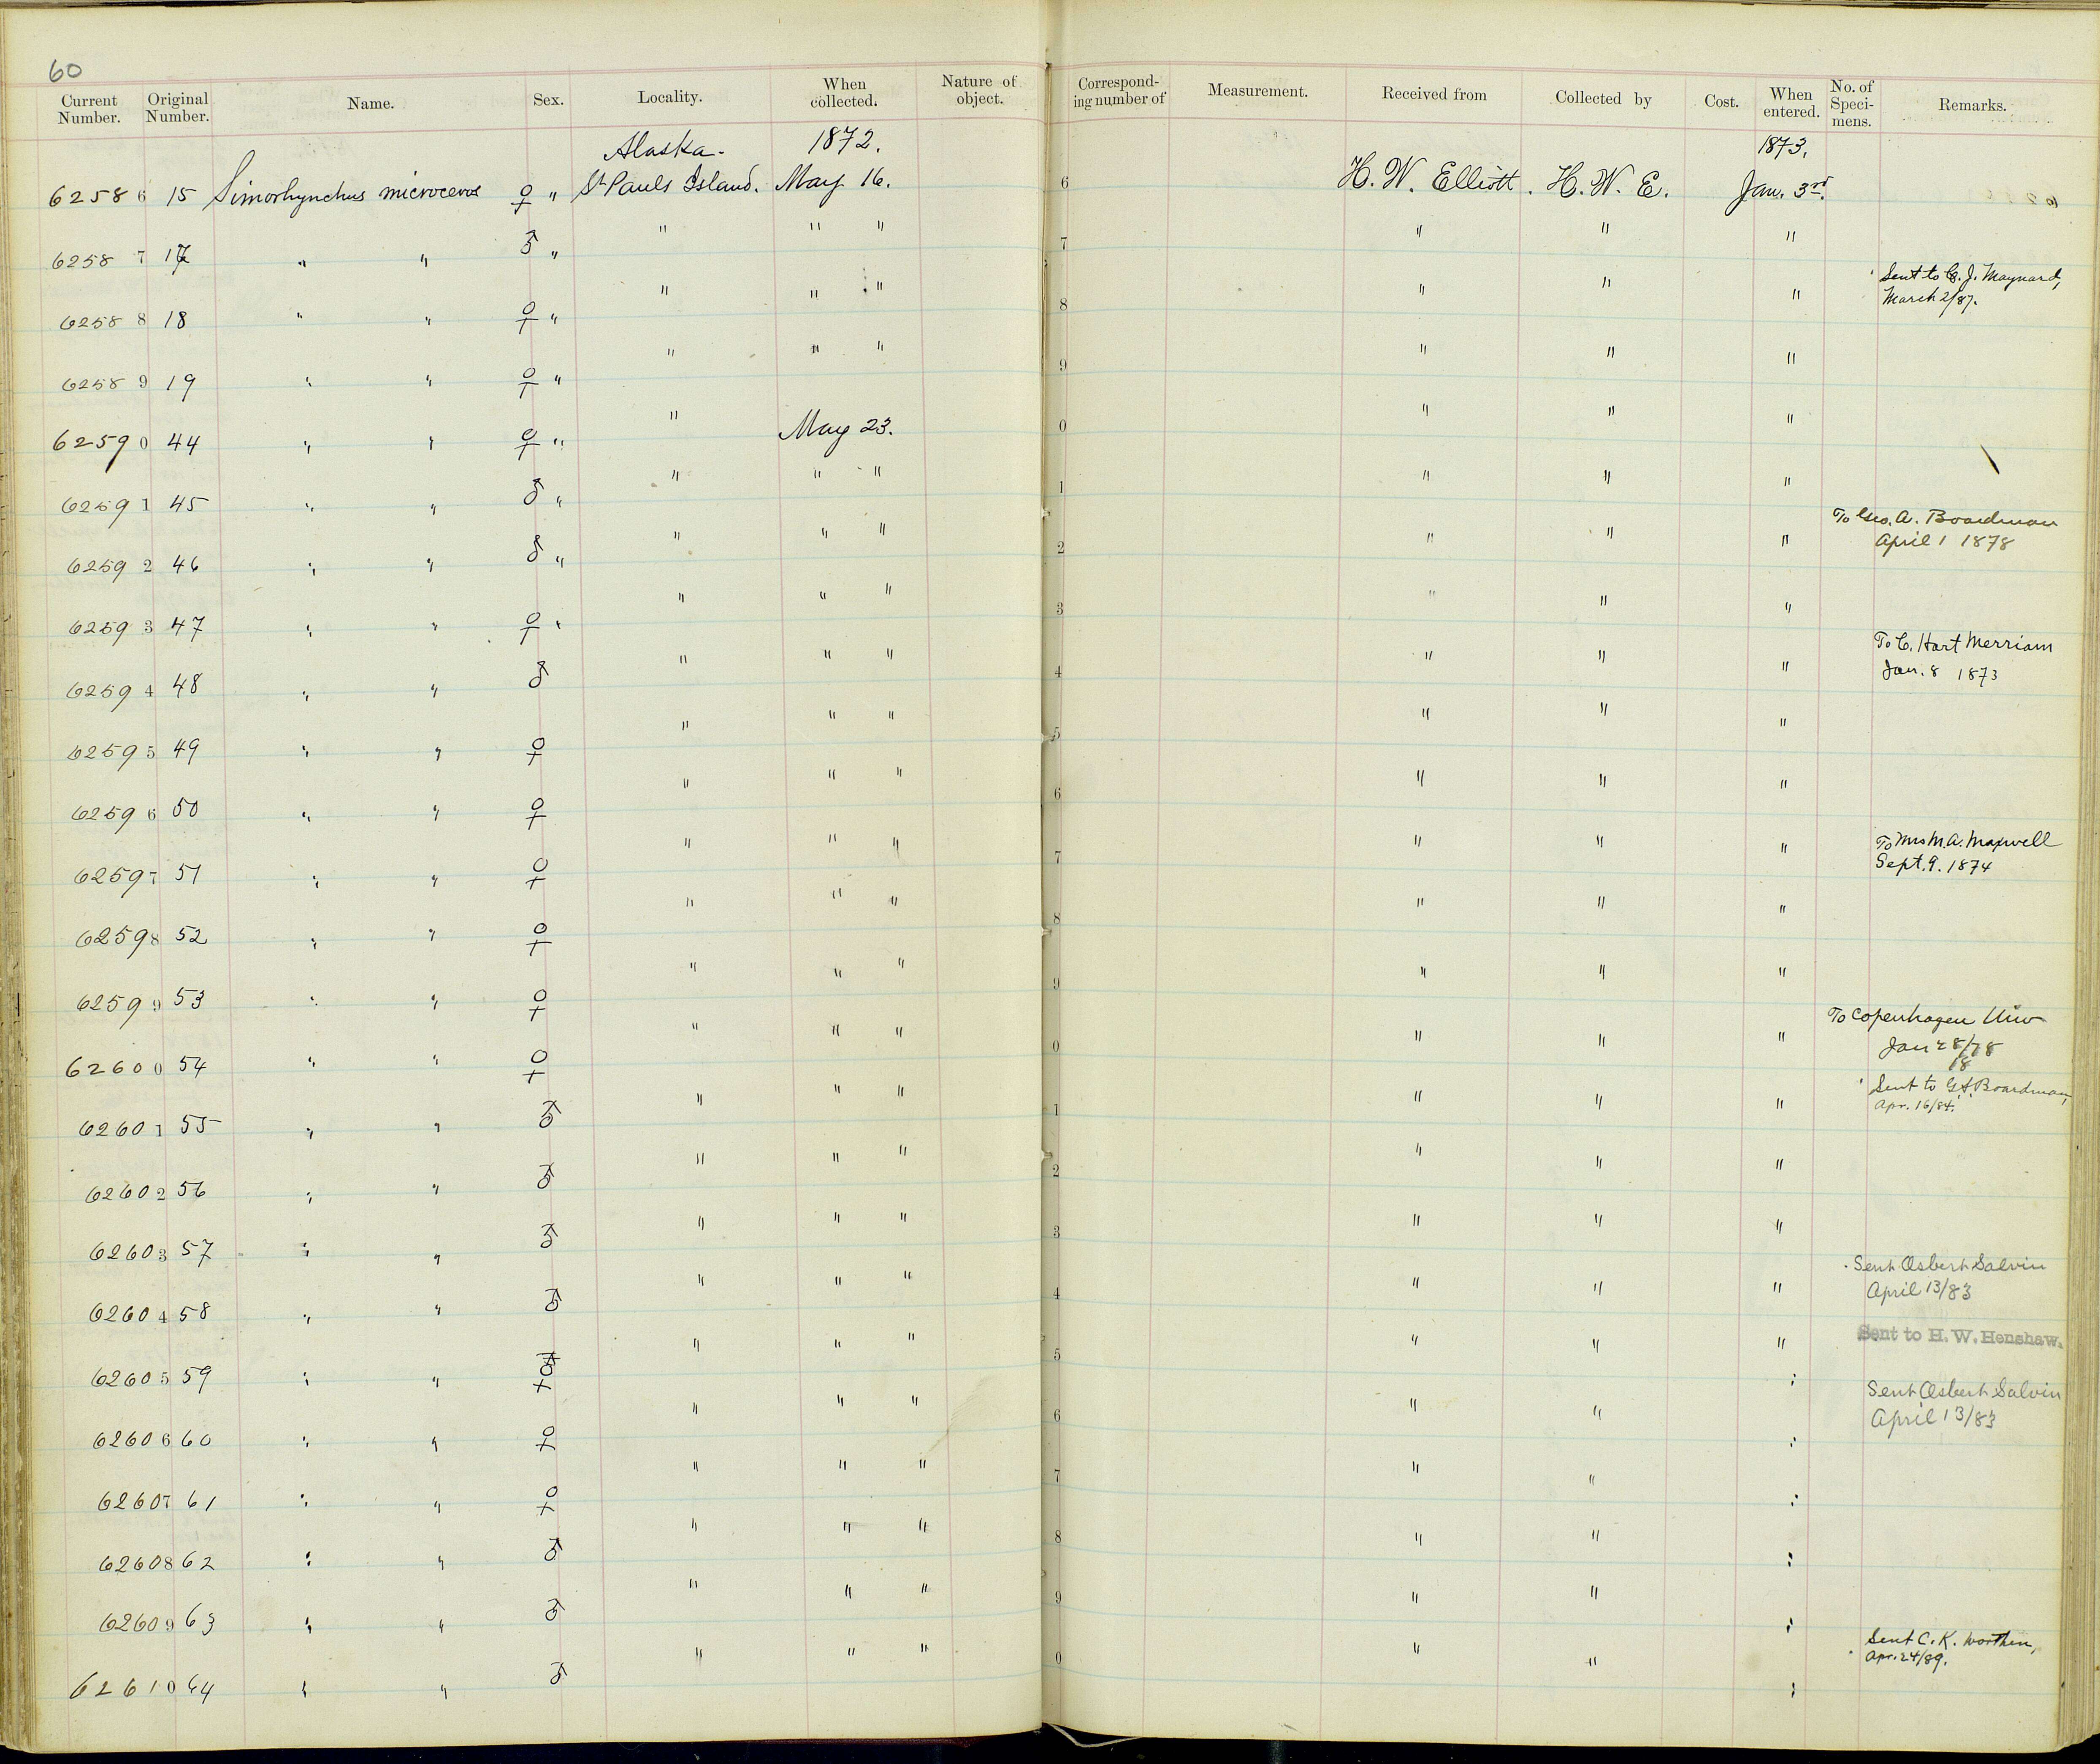 60
Current Number. Original Number. Name. Sex. Locality. When collected. Nature of object. Correspond-ing number of Measurement. Received from Collected by Cost. When entered. No. of Speci-mens. Remarks.
Alaska. 1872. 1873.
62586 15 Simorhynchus microceros ♀ " St Pauls Island. May 16. 6 H. W. Elliott. H. W. E. Jan. 3rd.
62587 17 " " ♂ " " " " 7 " " "
62588 18 " " ♀ " " " " 8 " " " Sent to C. J. Maynard, March 2/87.
62589 19 " " ♀ " " " " 9 " " "
62590 44 " " ♀ " " May 23. 0 " " "
62591 45 " " ♂ " " " " 1 " " "
62592 46 " " ♂ " " " " 2 " " " To Geo. A. Boardman April 1 1878
62593 47 " " ♀ " " " " 3 " " "
62594 48 " " ♂ " " " 4 " " " To C. Hart Merriam Jan. 8 1873
62595 49 " " ♀ " " " 5 " " "
62596 50 " " ♀ " " " 6 " " "
62597 51 " " ♀ " " " 7 " " " To Mrs M. A. Maxwell Sept. 9. 1874
62598 52 " " ♀ " " " 8 " " "
62599 53 " " ♀ " " " 9 " " "
62600 54 " " ♀ " " " 0 " " " To Copenhagen Univ Jan 28/78 18
62601 55 " " ♂ " " " 1 " " " Sent to G. A. Boardman, Apr. 16/84.
62602 56 " " ♂ " " " 2 " " "
62603 57 " " ♂ " " " 3 " " "
62604 58 " " ♂ " " " 4 " " " Sent Osbert Salvin April 13/83
62605 59 " " " " " 5 " " " Sent to H. W. Henshaw.
62606 60 " " ♀ " " " 6 " " " Sent Osbert Salvin April 13/83
62607 61 " " ♀ " " " 7 " " "
62608 62 " " ♂ " " " 8 " " "
62609 63 " " ♂ " " " 9 " " "
62610 64 " " ♂ " " " 0 " " " Sent C. K. Worthen, Apr. 24/89.